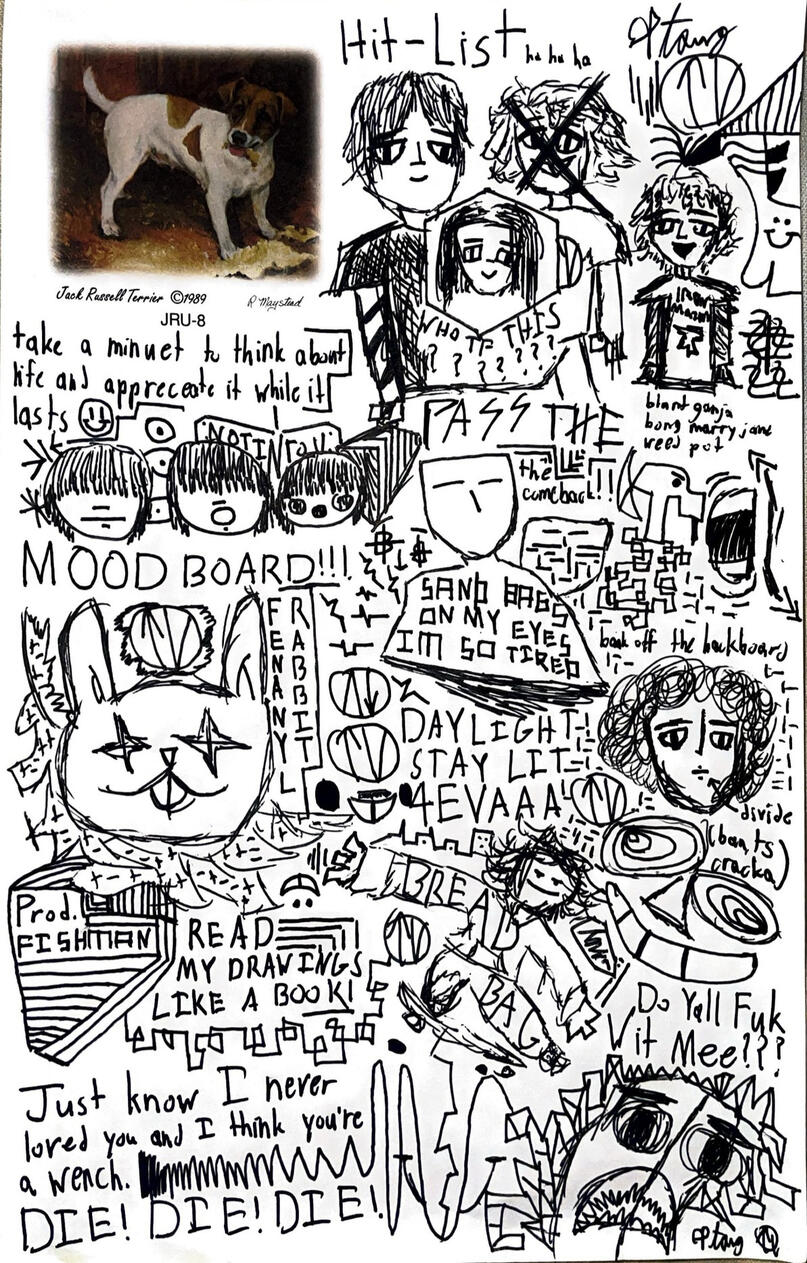 Hit-List ha ha ha
Ptang
Jack Russell Terrier ©1989
R Maystead
JRU-8
WHO TF THIS
? ? ? ? ? ? ?
IRON
MAIDEN
take a minuet to think about
life and appreceate it while it
lasts
NOTINTOU
PASS THE
blunt ganja
bong marry jane
weed pot
the
comeback!!
MOOD BOARD!!!
SAND BAGS
ON MY EYES
IM SO TIRED
back off the backboard
FENANYL
RABBIT
DAYLIGHT!
STAY LIT
4EVAAA
divide
(ban, ts
cracka)
BREAD
BAG
Prod.
FISHMAN
READ
MY DRAWINGS
LIKE A BOOK!
Do Yall Fuk
Wit Mee???
Just know I never
loved you and I think you're
a wench.
DIE! DIE! DIE!
Ptang